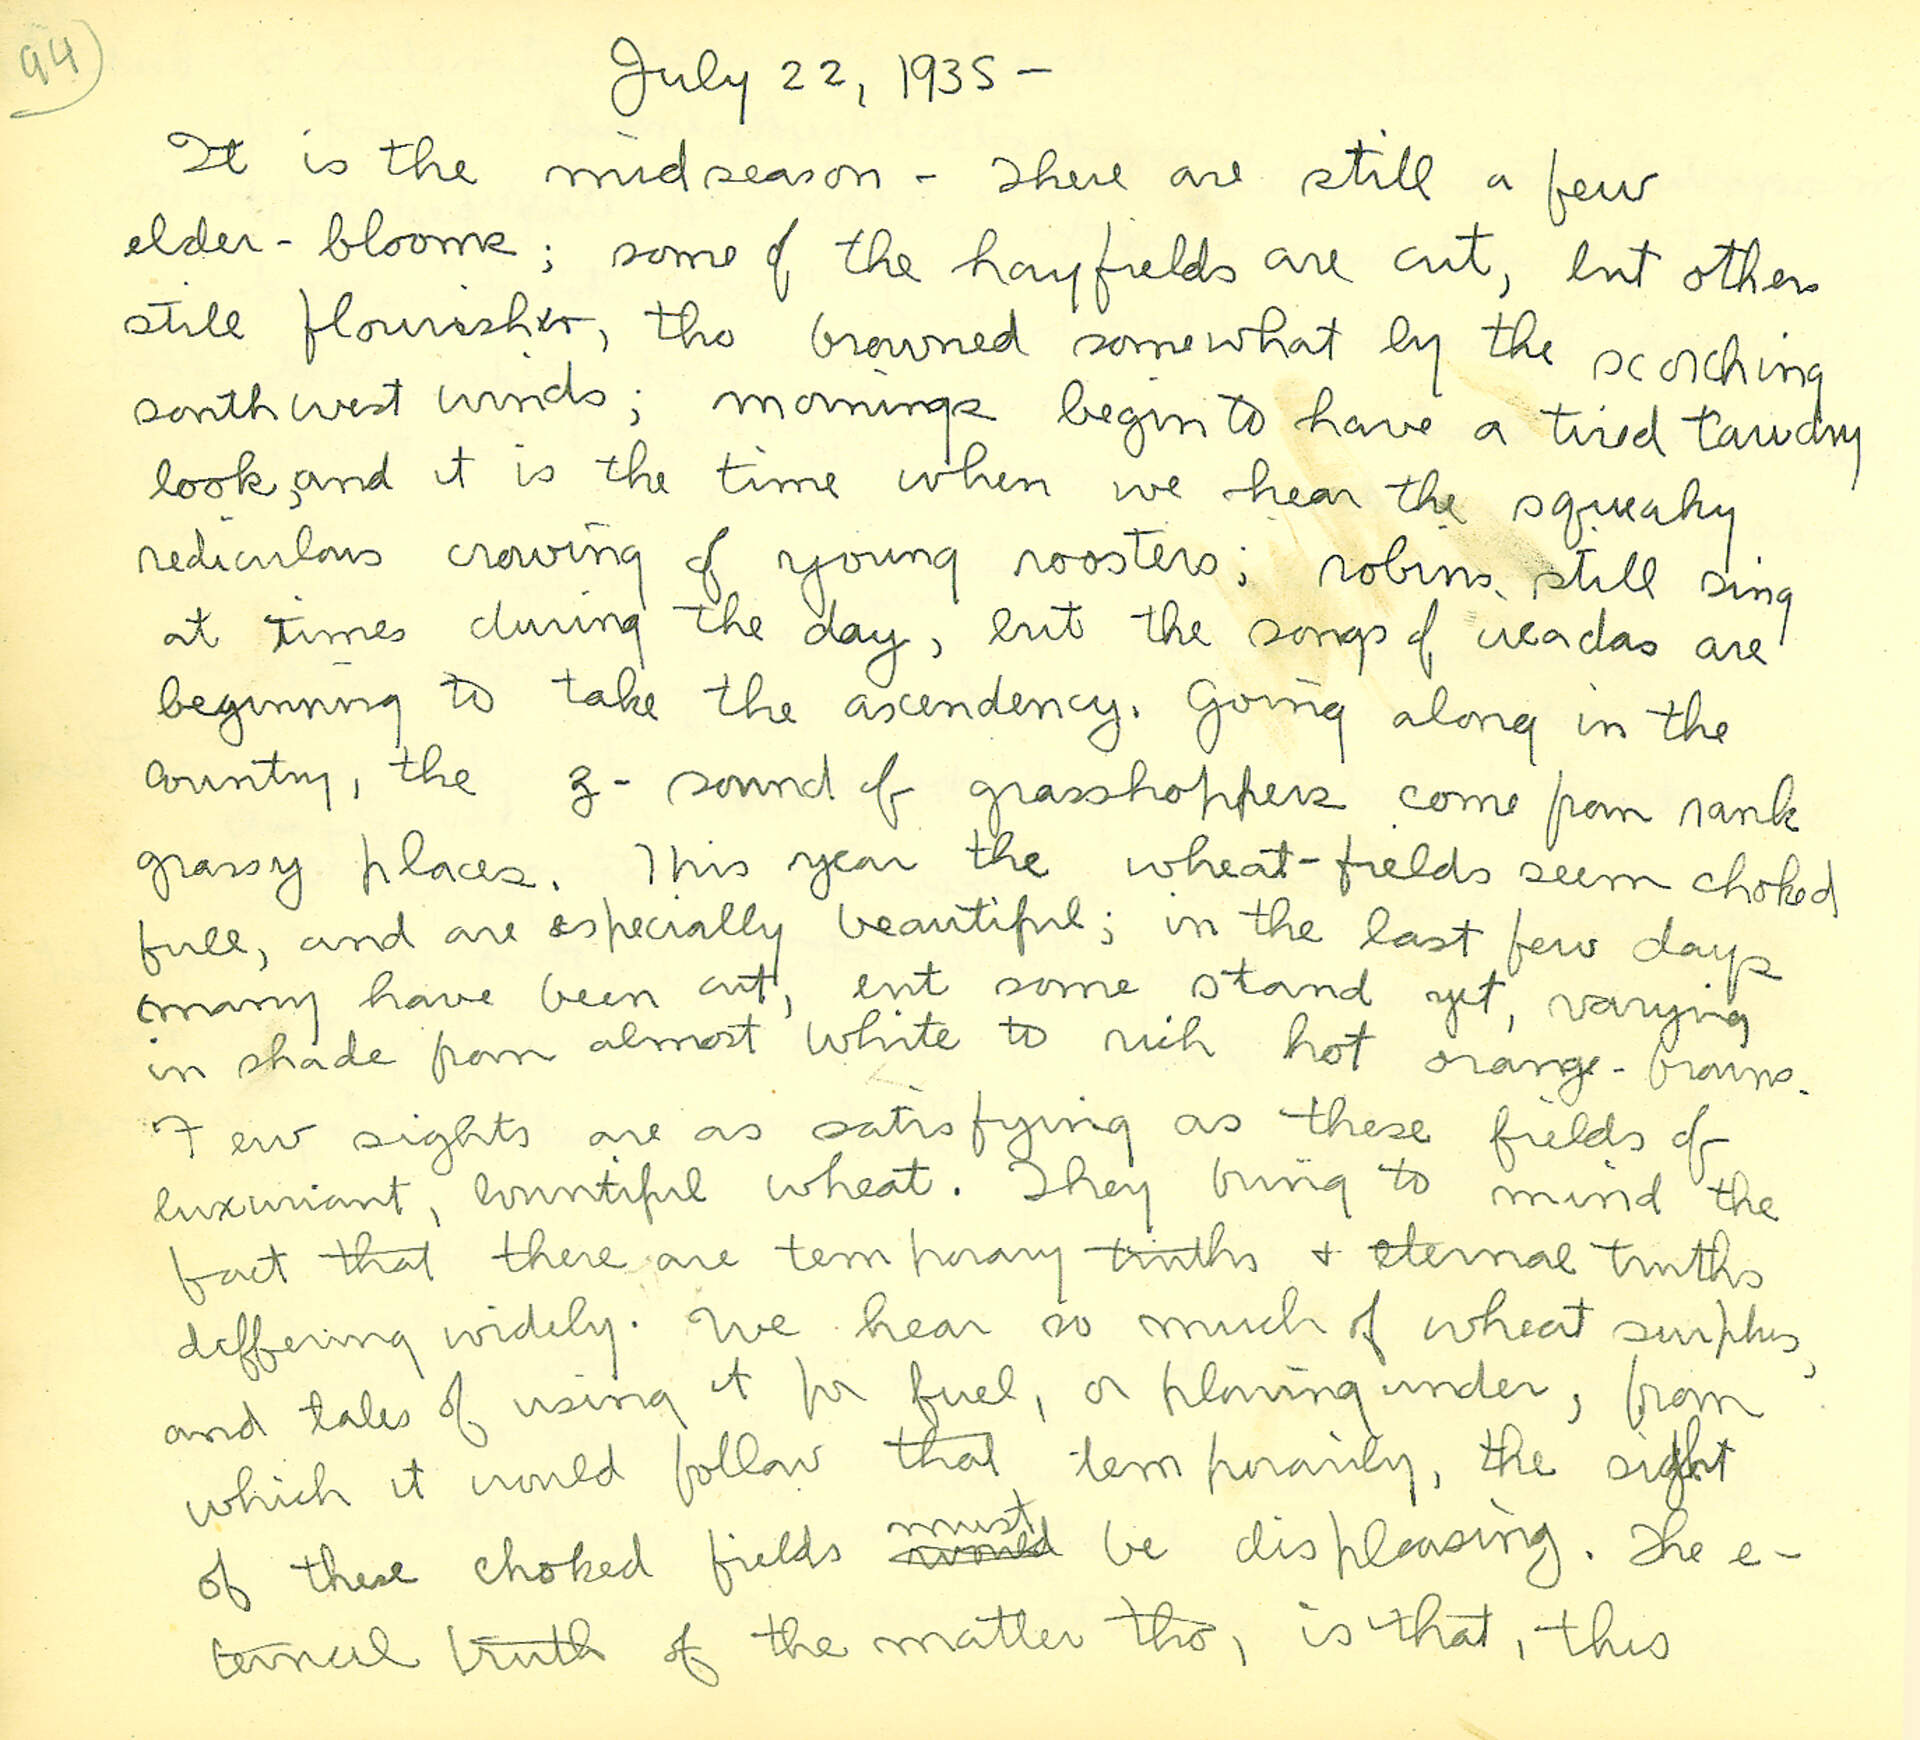 94
July 22, 1935 –
It is the midseason – There are still a few
elder-blooms; some of the hayfields are cut, but others
still flourish, tho browned somewhat by the scorching
southwest winds; mornings begin to have a tired tawdry
look, and it is the time when we hear the squeaky
rediculous crowing of young roosters; robins still sing
at times during the day, but the songs of cicadas are
beginning to take the ascendency. Going along in the
country, the z- sound of grasshoppers come from rank
grassy places. This year the wheat-fields seem choked
full, and are especially beautiful; in the last few days
many have been cut, but some stand yet, varying
in shade from almost white to rich hot orange-browns.
Few sights are as satisfying as these fields of
luxuriant, bountiful wheat. They bring to mind the
fact that there are temporary truths & eternal truths
differing widely. We hear so much of wheat surplus,
and tales of using it for fuel, or plowing under, from
which it would follow that temporarily, the sight
of these choked fields must would be displeasing. The e-
ternal truth of the matter tho, is that, this